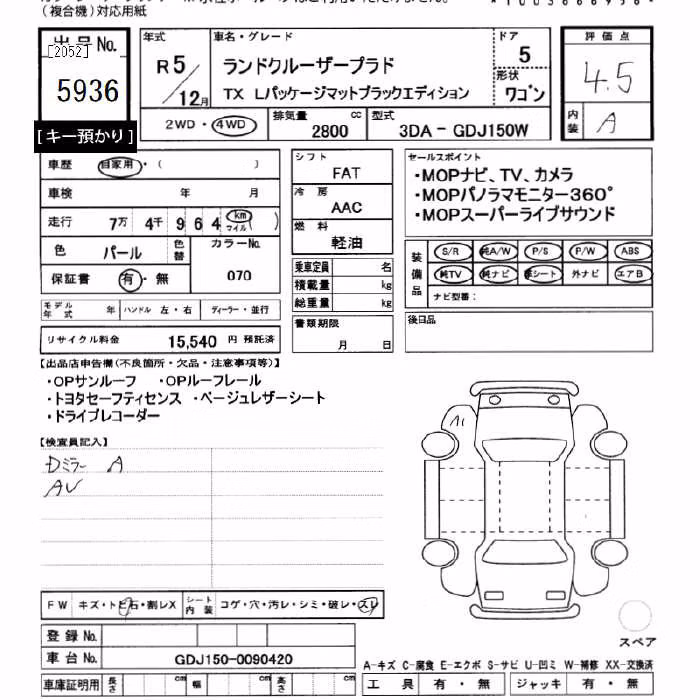 (複合機)対応用紙
出品No.
[2052]
5936
[キー預かり]
年式
R5/12月
車名・グレード
ランドクルーザープラド
TX Lパッケージマットブラックエディション
ドア
5
形状
ワゴン
評価点
4.5
内装
A
2WD・4WD
排気量
2800 cc
型式
3DA - GDJ150W
車歴 自家用・( )
車検 年 月
走行 7万 4千 9 6 4 km マイル ( )
色 パール 色替
カラーNo. 070
保証書 有・無
モデル年式 年 ハンドル 左・右 ディーラー・並行
リサイクル料金 15,540 円 預託済
シフト
FAT
冷房
AAC
燃料
軽油
乗車定員 名
積載量 kg
総重量 kg
書類期限
月 日
セールスポイント
・MOPナビ、TV、カメラ
・MOPパノラマモニター360°
・MOPスーパーライブサウンド
装備品
S/R 純A/W P/S P/W ABS
純TV 純ナビ 革シート 外ナビ エアB
ナビ型番:
後日品
【出品店申告欄(不良箇所・欠品・注意事項等)】
・OPサンルーフ ・OPルーフレール
・トヨタセーフティセンス ・ベージュレザーシート
・ドライブレコーダー
【検査員記入】
Dミラー A
AV
A1
FW キズ・トビ石・割レX
シート内装 コゲ・穴・汚レ・シミ・破レ・スレ
登録No.
車台No. GDJ150-0090420
車庫証明用 長さ cm 幅 cm 高さ cm
スペア
A-キズ C-腐食 E-エクボ S-サビ U-凹ミ W-補修 XX-交換済
工具 有・無 ジャッキ 有・無